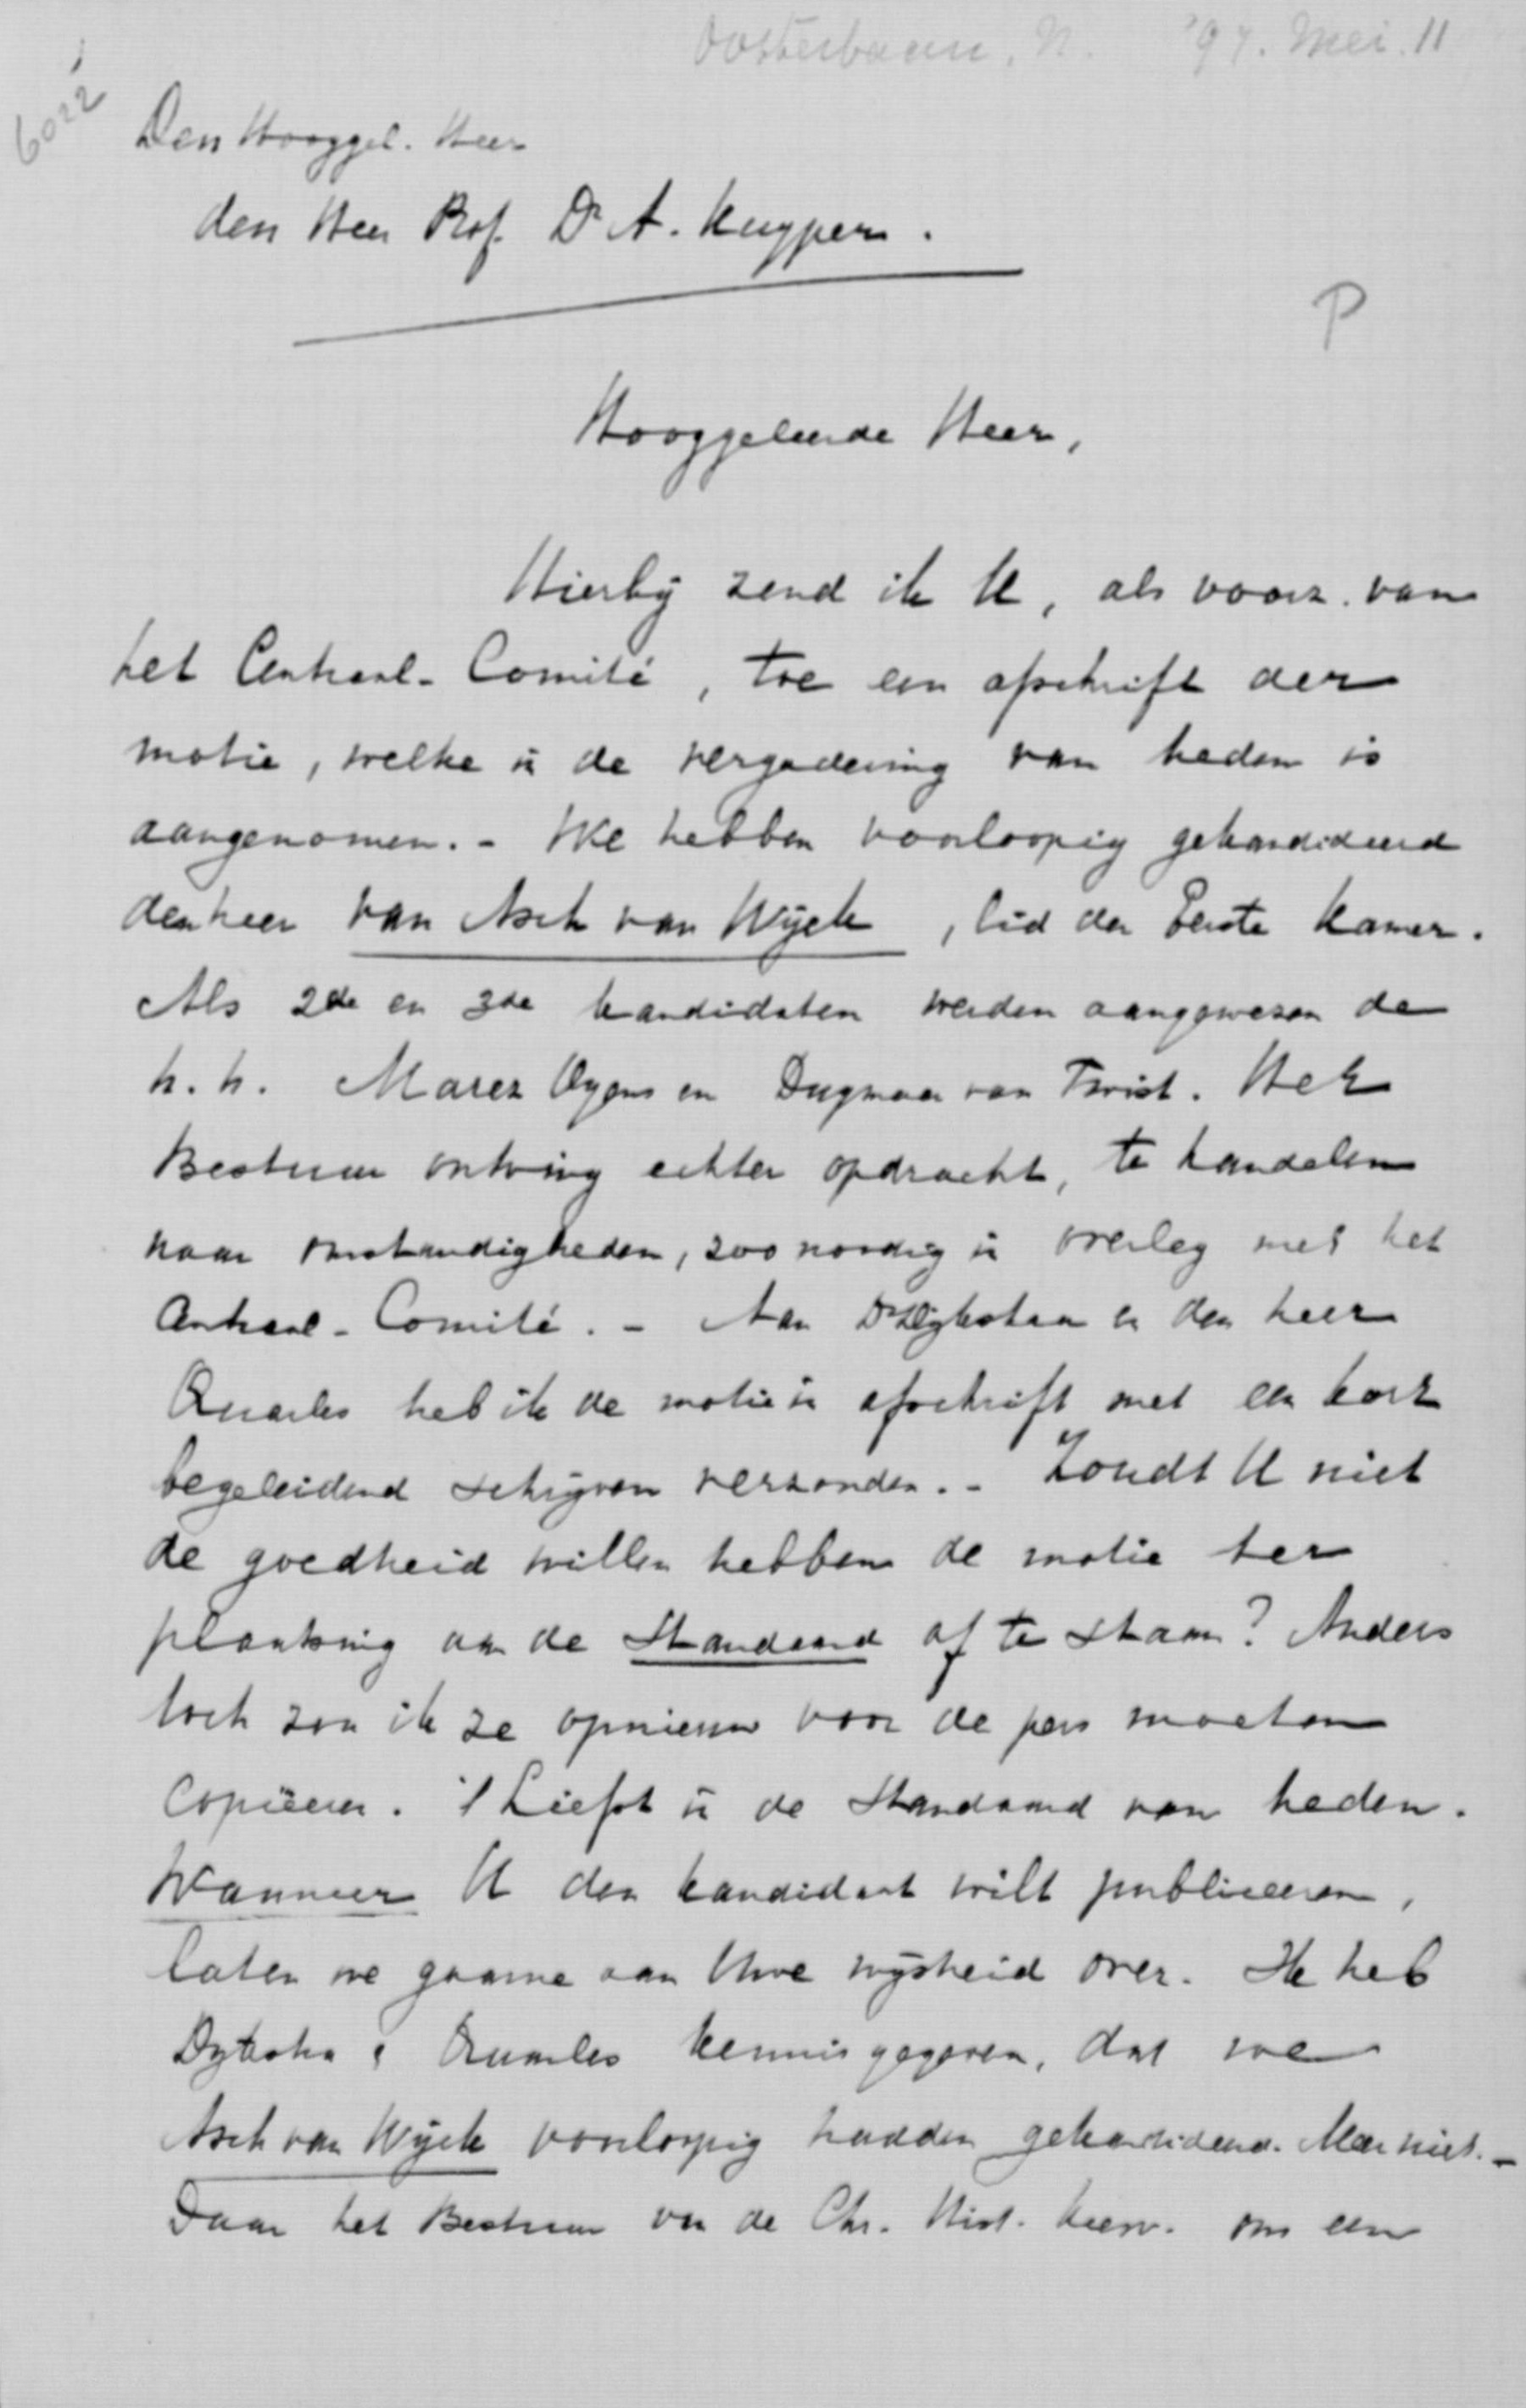 Oosterbaan, N. '97. Mei. 11
6022
Den Hooggel. Heer
den Heer Prof. Dr A. Kuyper.
P
Hooggeleerde Heer,
Hierbij zend ik U, als voorz. van
het Centraal-Comité, toe een afschrift der
motie, welke in de vergadering van heden is
aangenomen. - We hebben voorloopig gekandideerd
den heer van Asch van Wijck, lid der Eerste Kamer.
Als 2de en 3de kandidaten werden aangewezen de
h.h. Marez Oyens en Duymaer van Twist. Het
Bestuur ontving echter opdracht, te handelen
naar omstandigheden, zoo noodig in overleg met het
Centraal-Comité. - Aan Dr Dijkstra en den heer
Quarles heb ik de motie in afschrift met een kort
begeleidend schrijven verzonden. - Zoudt U niet
de goedheid willen hebben de motie ter
plaatsing aan de Standaard af te staan? Anders
toch zou ik ze opnieuw voor de pers moeten
copiëeren. 't Liefst in de Standaard van heden.
Wanneer U den kandidaat wilt publiceeren,
laten we gaarne aan Uwe wijsheid over. Ik heb
Dykstra & Quarles kennis gegeven, dat we
Asch van Wijck voorloopig hadden gekandideerd. Meer niet. -
Daar het Bestuur van de Chr. Hist. Kiesv. om een